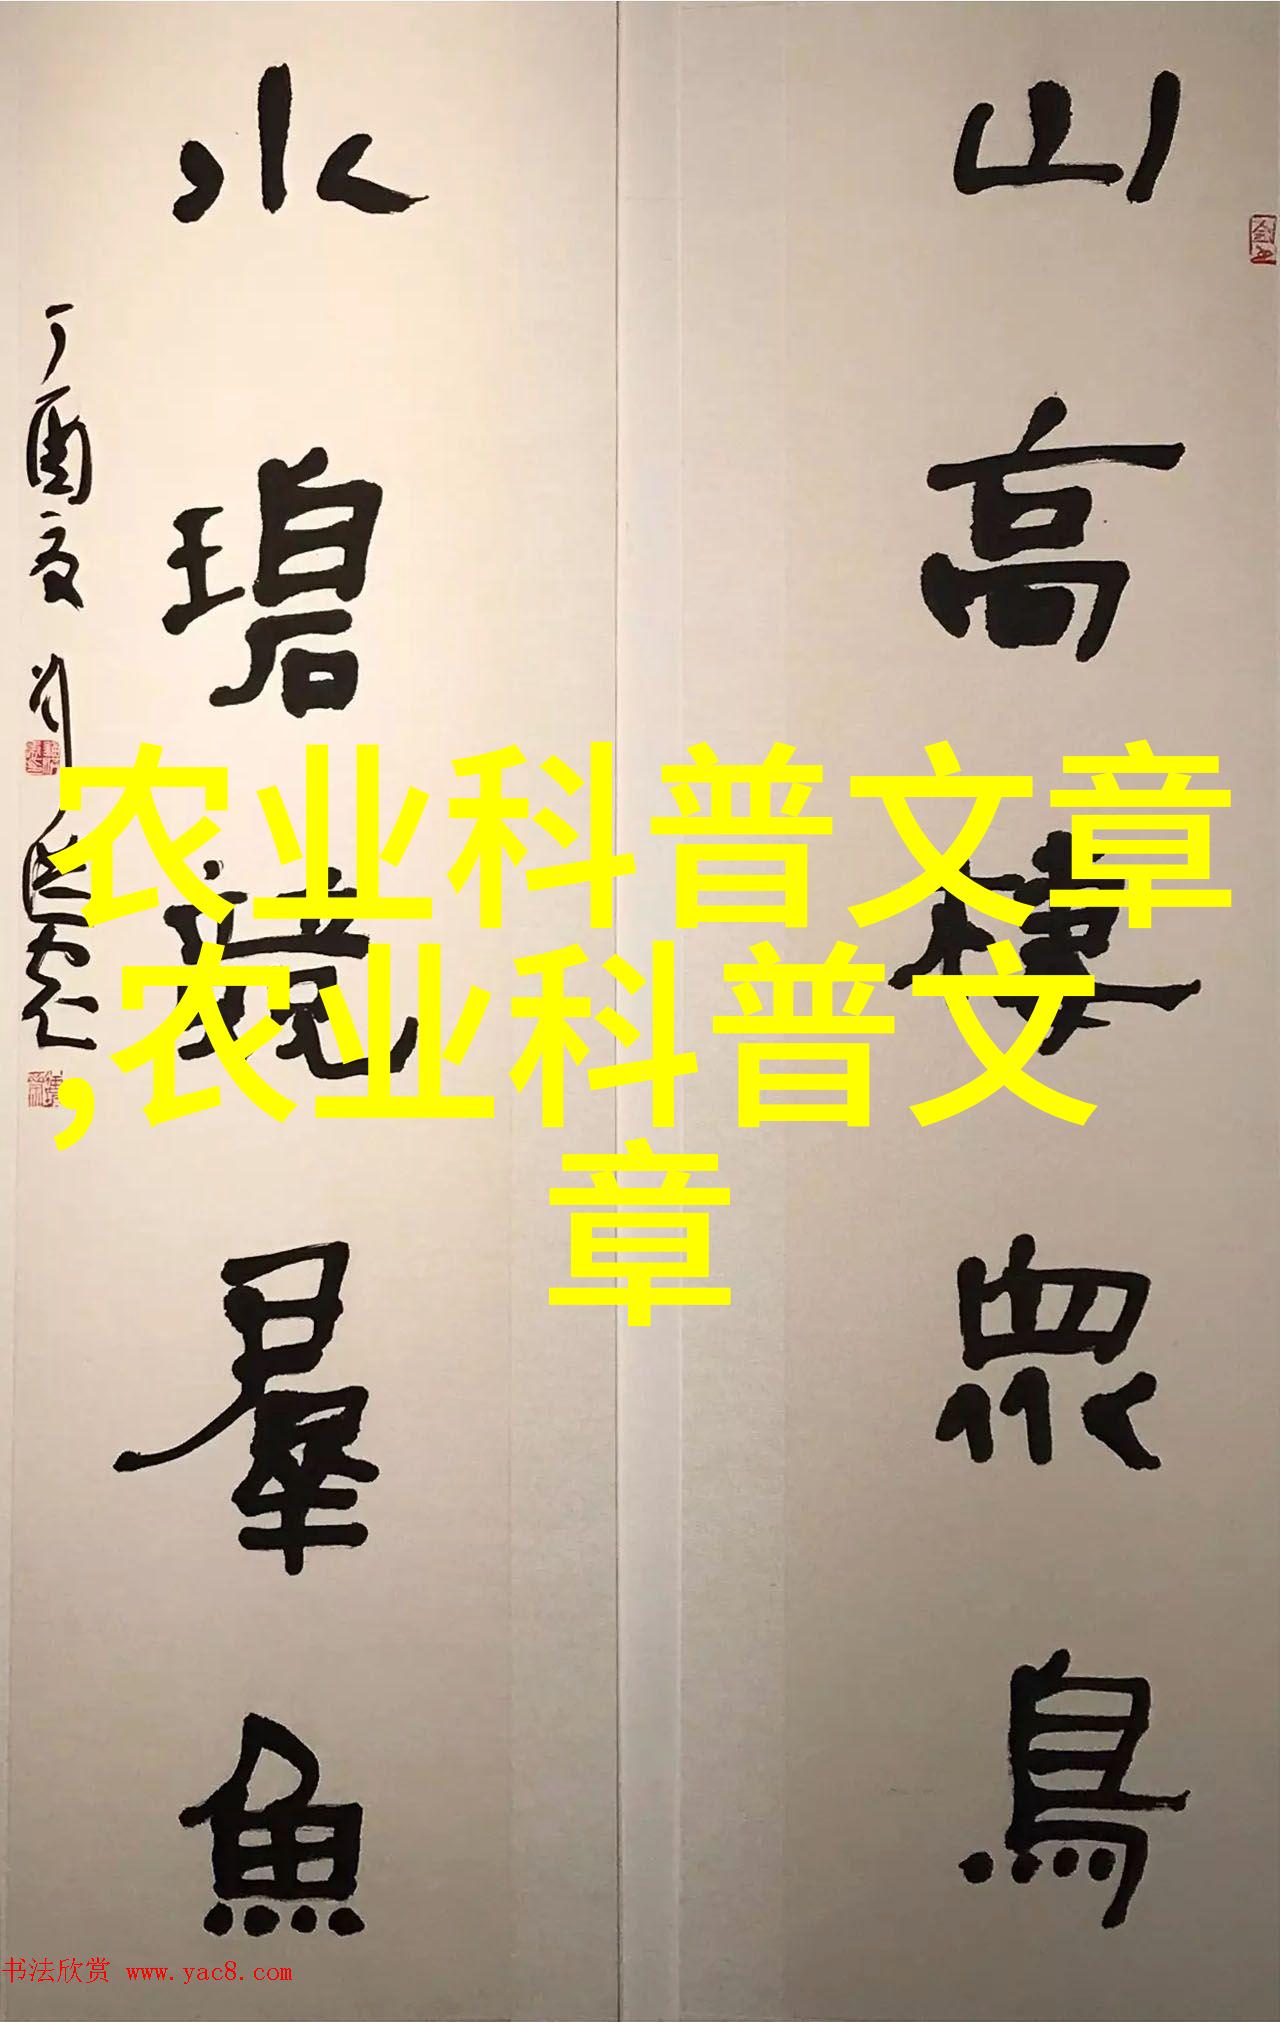 山高棲眾鳥
水碧竟羣魚
丁酉夏
农业科普文章
,农业科普文
章
书法欣赏 www.yac8.com